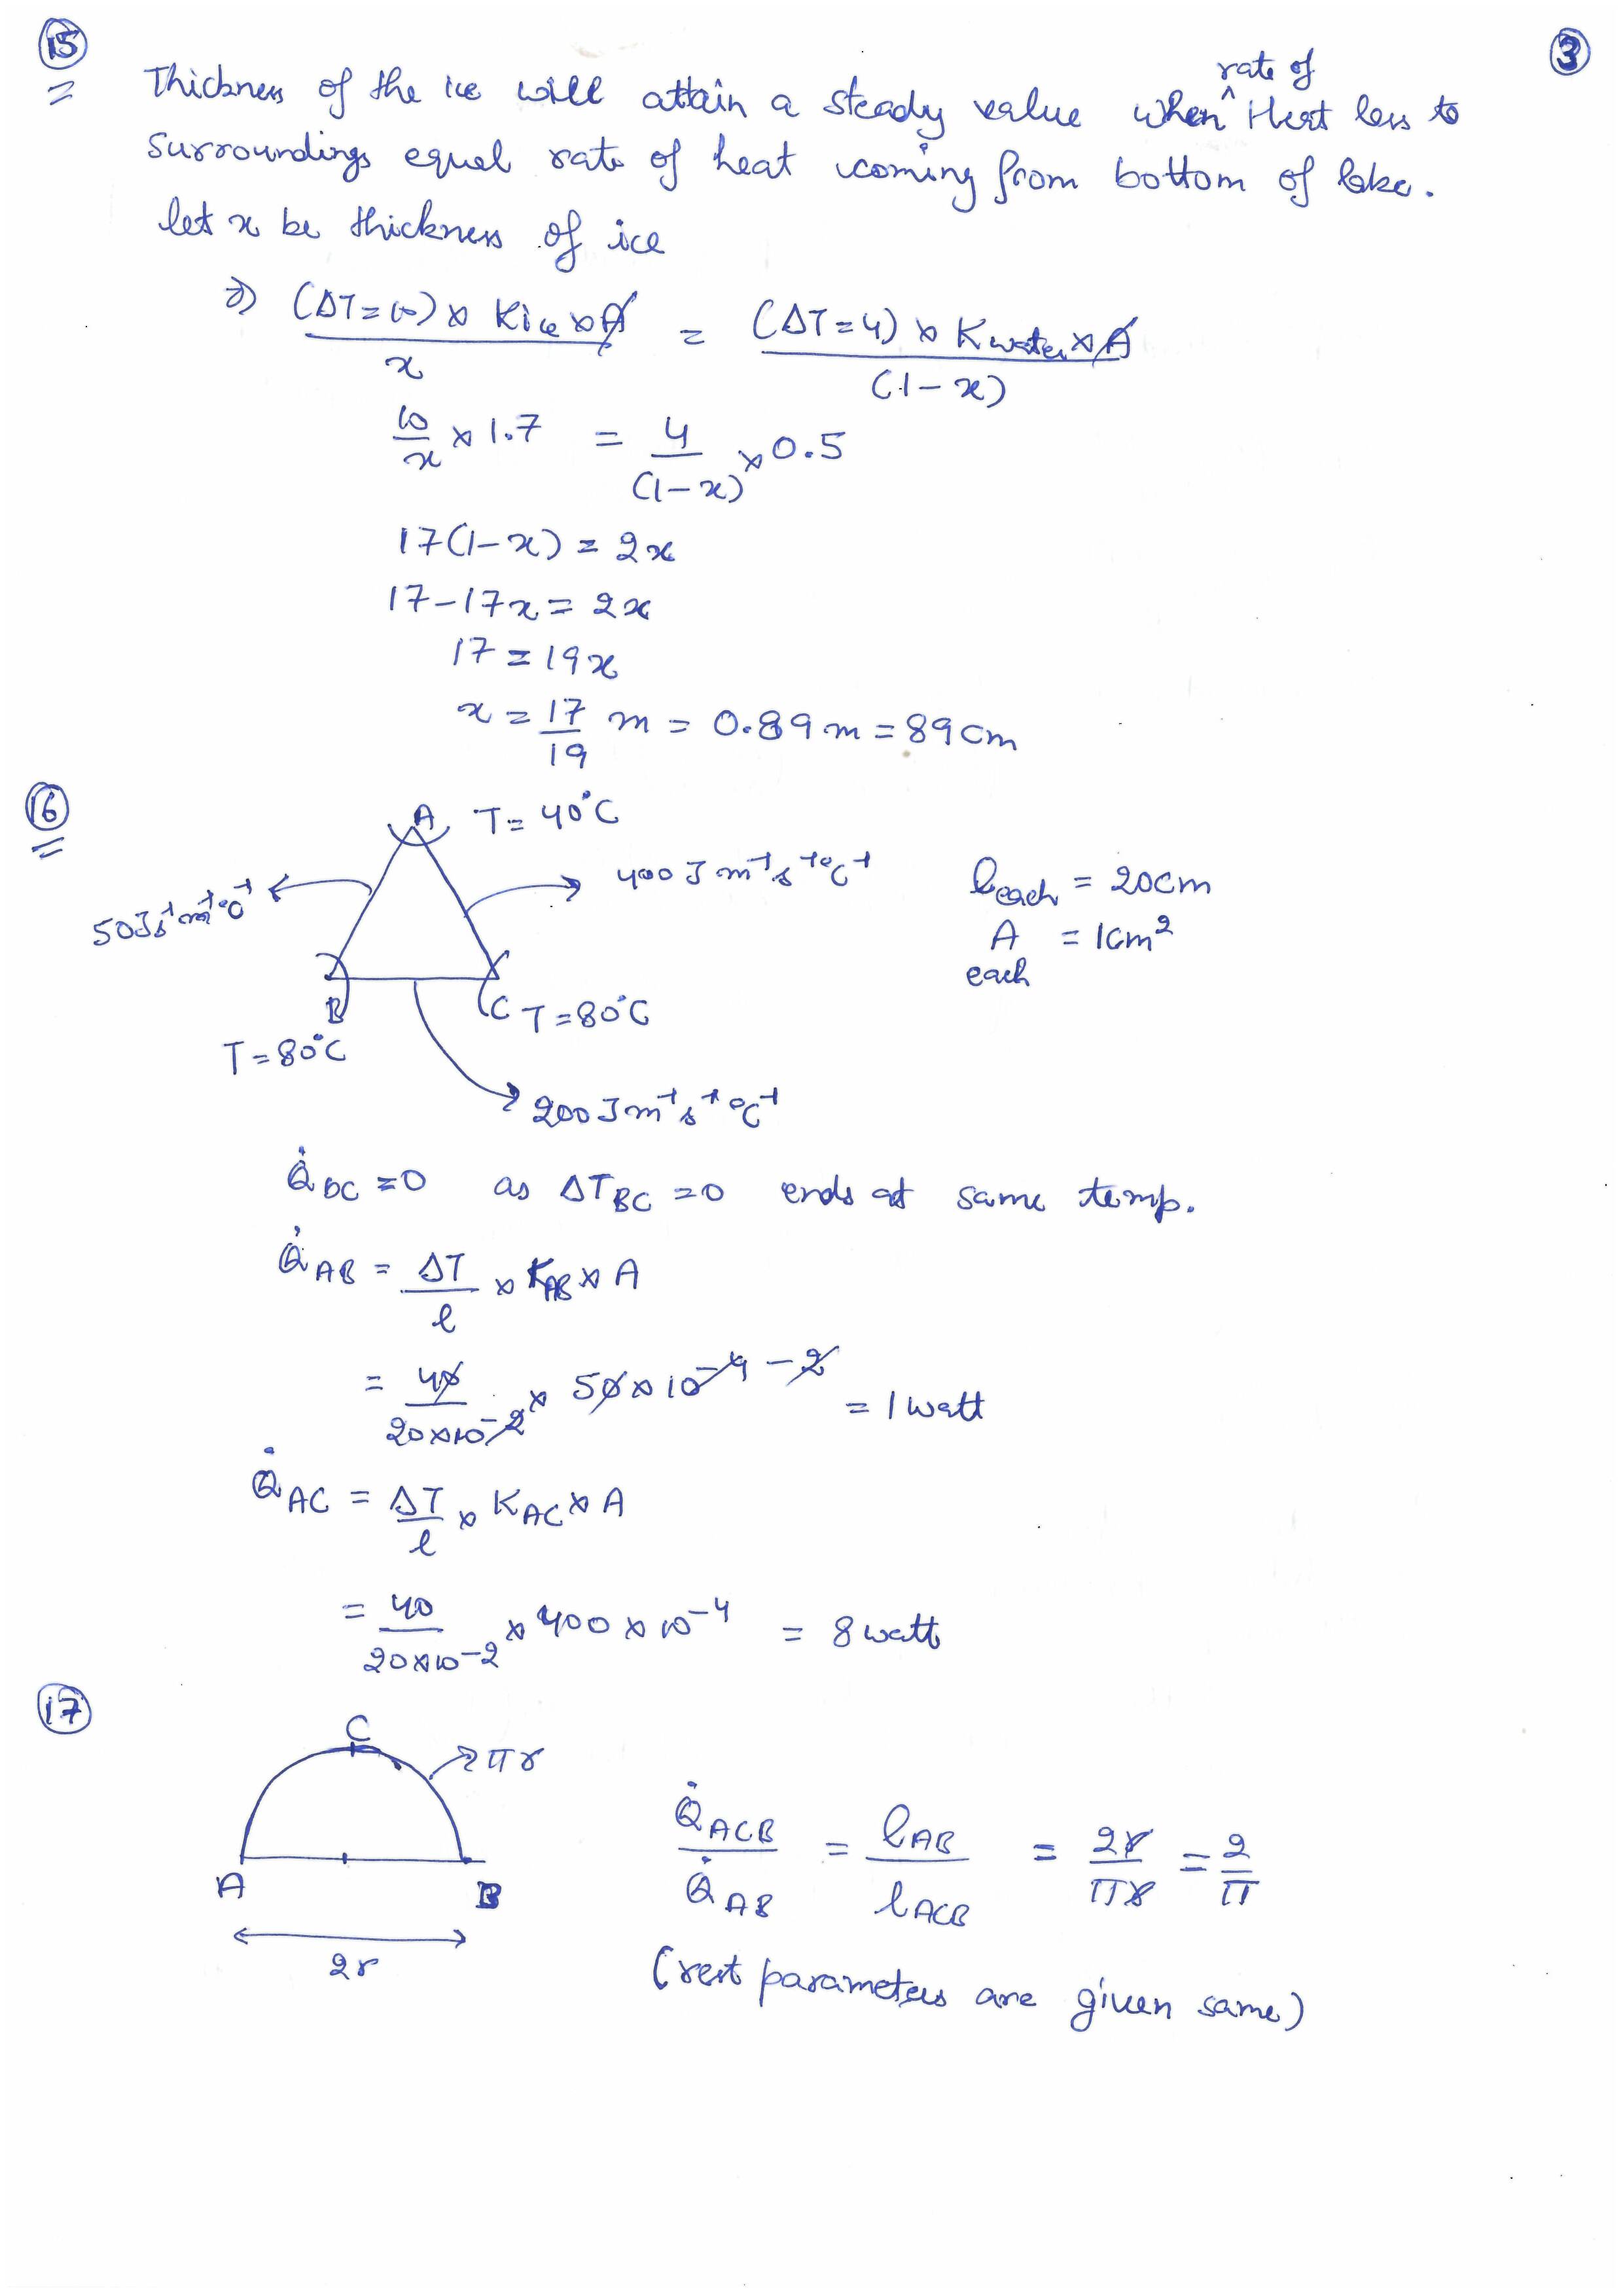 15
3
rate of
Thickness of the ice will attain a steady value when ^ Heat loss to
surroundings equal rate of heat coming from bottom of lake.
let x be thickness of ice
⇒ (ΔT=10) × Kice × A / x = (ΔT=4) × Kwater × A / (1-x)
10/x × 1.7 = 4/(1-x) × 0.5
17(1-x) = 2x
17-17x = 2x
17 = 19x
x = 17/19 m = 0.89 m = 89 cm
16
A T = 40°C
400 J m⁻¹ s⁻¹ °C⁻¹
l each = 20 cm
50 J s⁻¹ m⁻¹ °C⁻¹
A each = 1 cm²
B C T = 80°C
T = 80°C
200 J m⁻¹ s⁻¹ °C⁻¹
Q̇ BC = 0 as ΔT BC = 0 ends at same temp.
Q̇ AB = ΔT/l × K AB × A
= 40/(20×10⁻²) × 50 × 10⁻⁴ ⁻ ² = 1 watt
Q̇ AC = ΔT/l × K AC × A
= 40/(20×10⁻²) × 400 × 10⁻⁴ = 8 watt
17
C
πr
Q̇ ACB / Q̇ AB = l AB / l ACB = 2r/πr = 2/π
A B
2r
(rest parameters are given same)